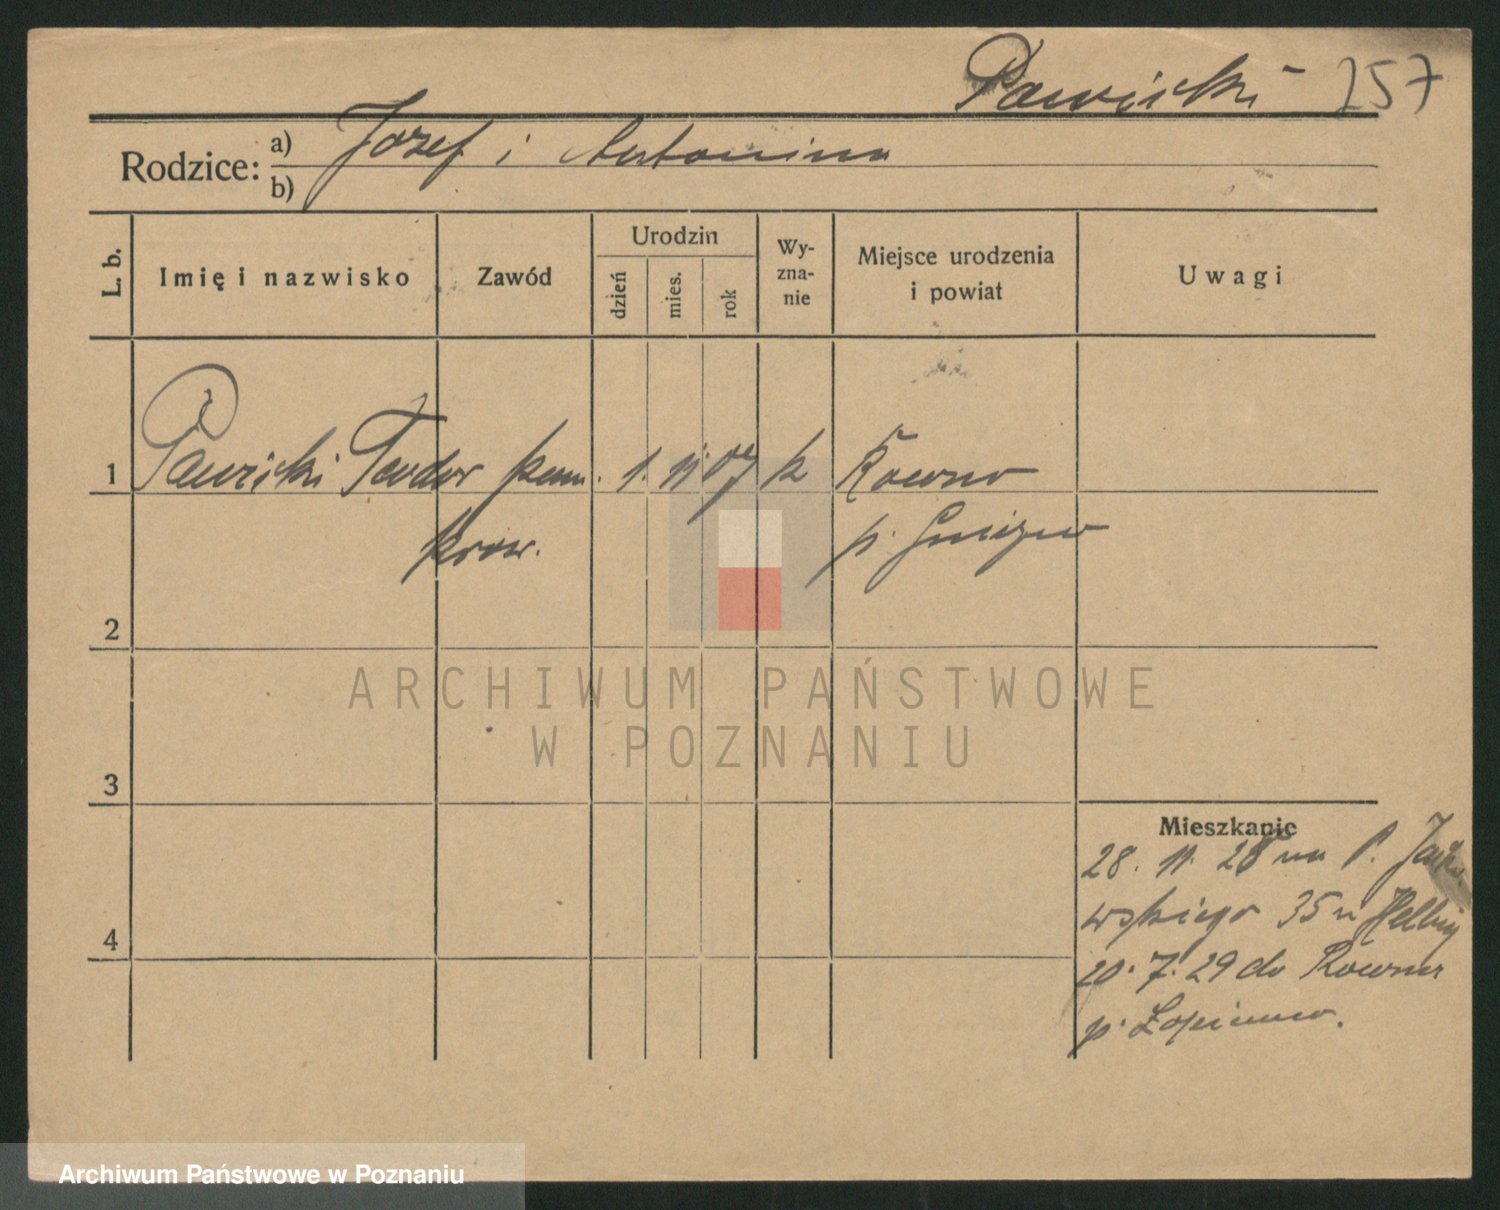 Pawicki 257
Rodzice: a) Jozef i Antonina
b)
L. b.
Imię i nazwisko
Zawód
Urodzin
dzień
mies.
rok
Wy-
zna-
nie
Miejsce urodzenia
i powiat
Uwagi
1 Pawicki Teodor pom. 1. 11. 07 k Rowno
krow. p. Gniezno
2
3
4
Mieszkanie
28. 11. 28 na P.
wskiego 35 u Helbing
20. 7. 29 do Rowna
p. Łopienno.
ARCHIWUM PAŃSTWOWE
W POZNANIU
Archiwum Państwowe w Poznaniu